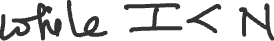 while I < N